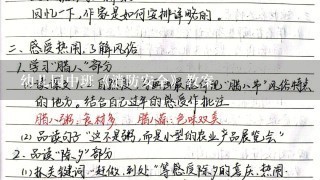 回忆一下,作家是如何安排详略的。
二、感受热闹,了解风俗
1. 学习“腊八”部分
幼儿园中班《消防安全》教案
的地方。结合自己过年的感受作批注
腊八粥:食材多 腊八蒜:色味双美
(2) 品读句子“这不是粥,而是小型的农业产品展览会”
2. 品读“除夕”部分
(1) 找关键词:赶做、到处 等感受除夕的喜庆、热闹